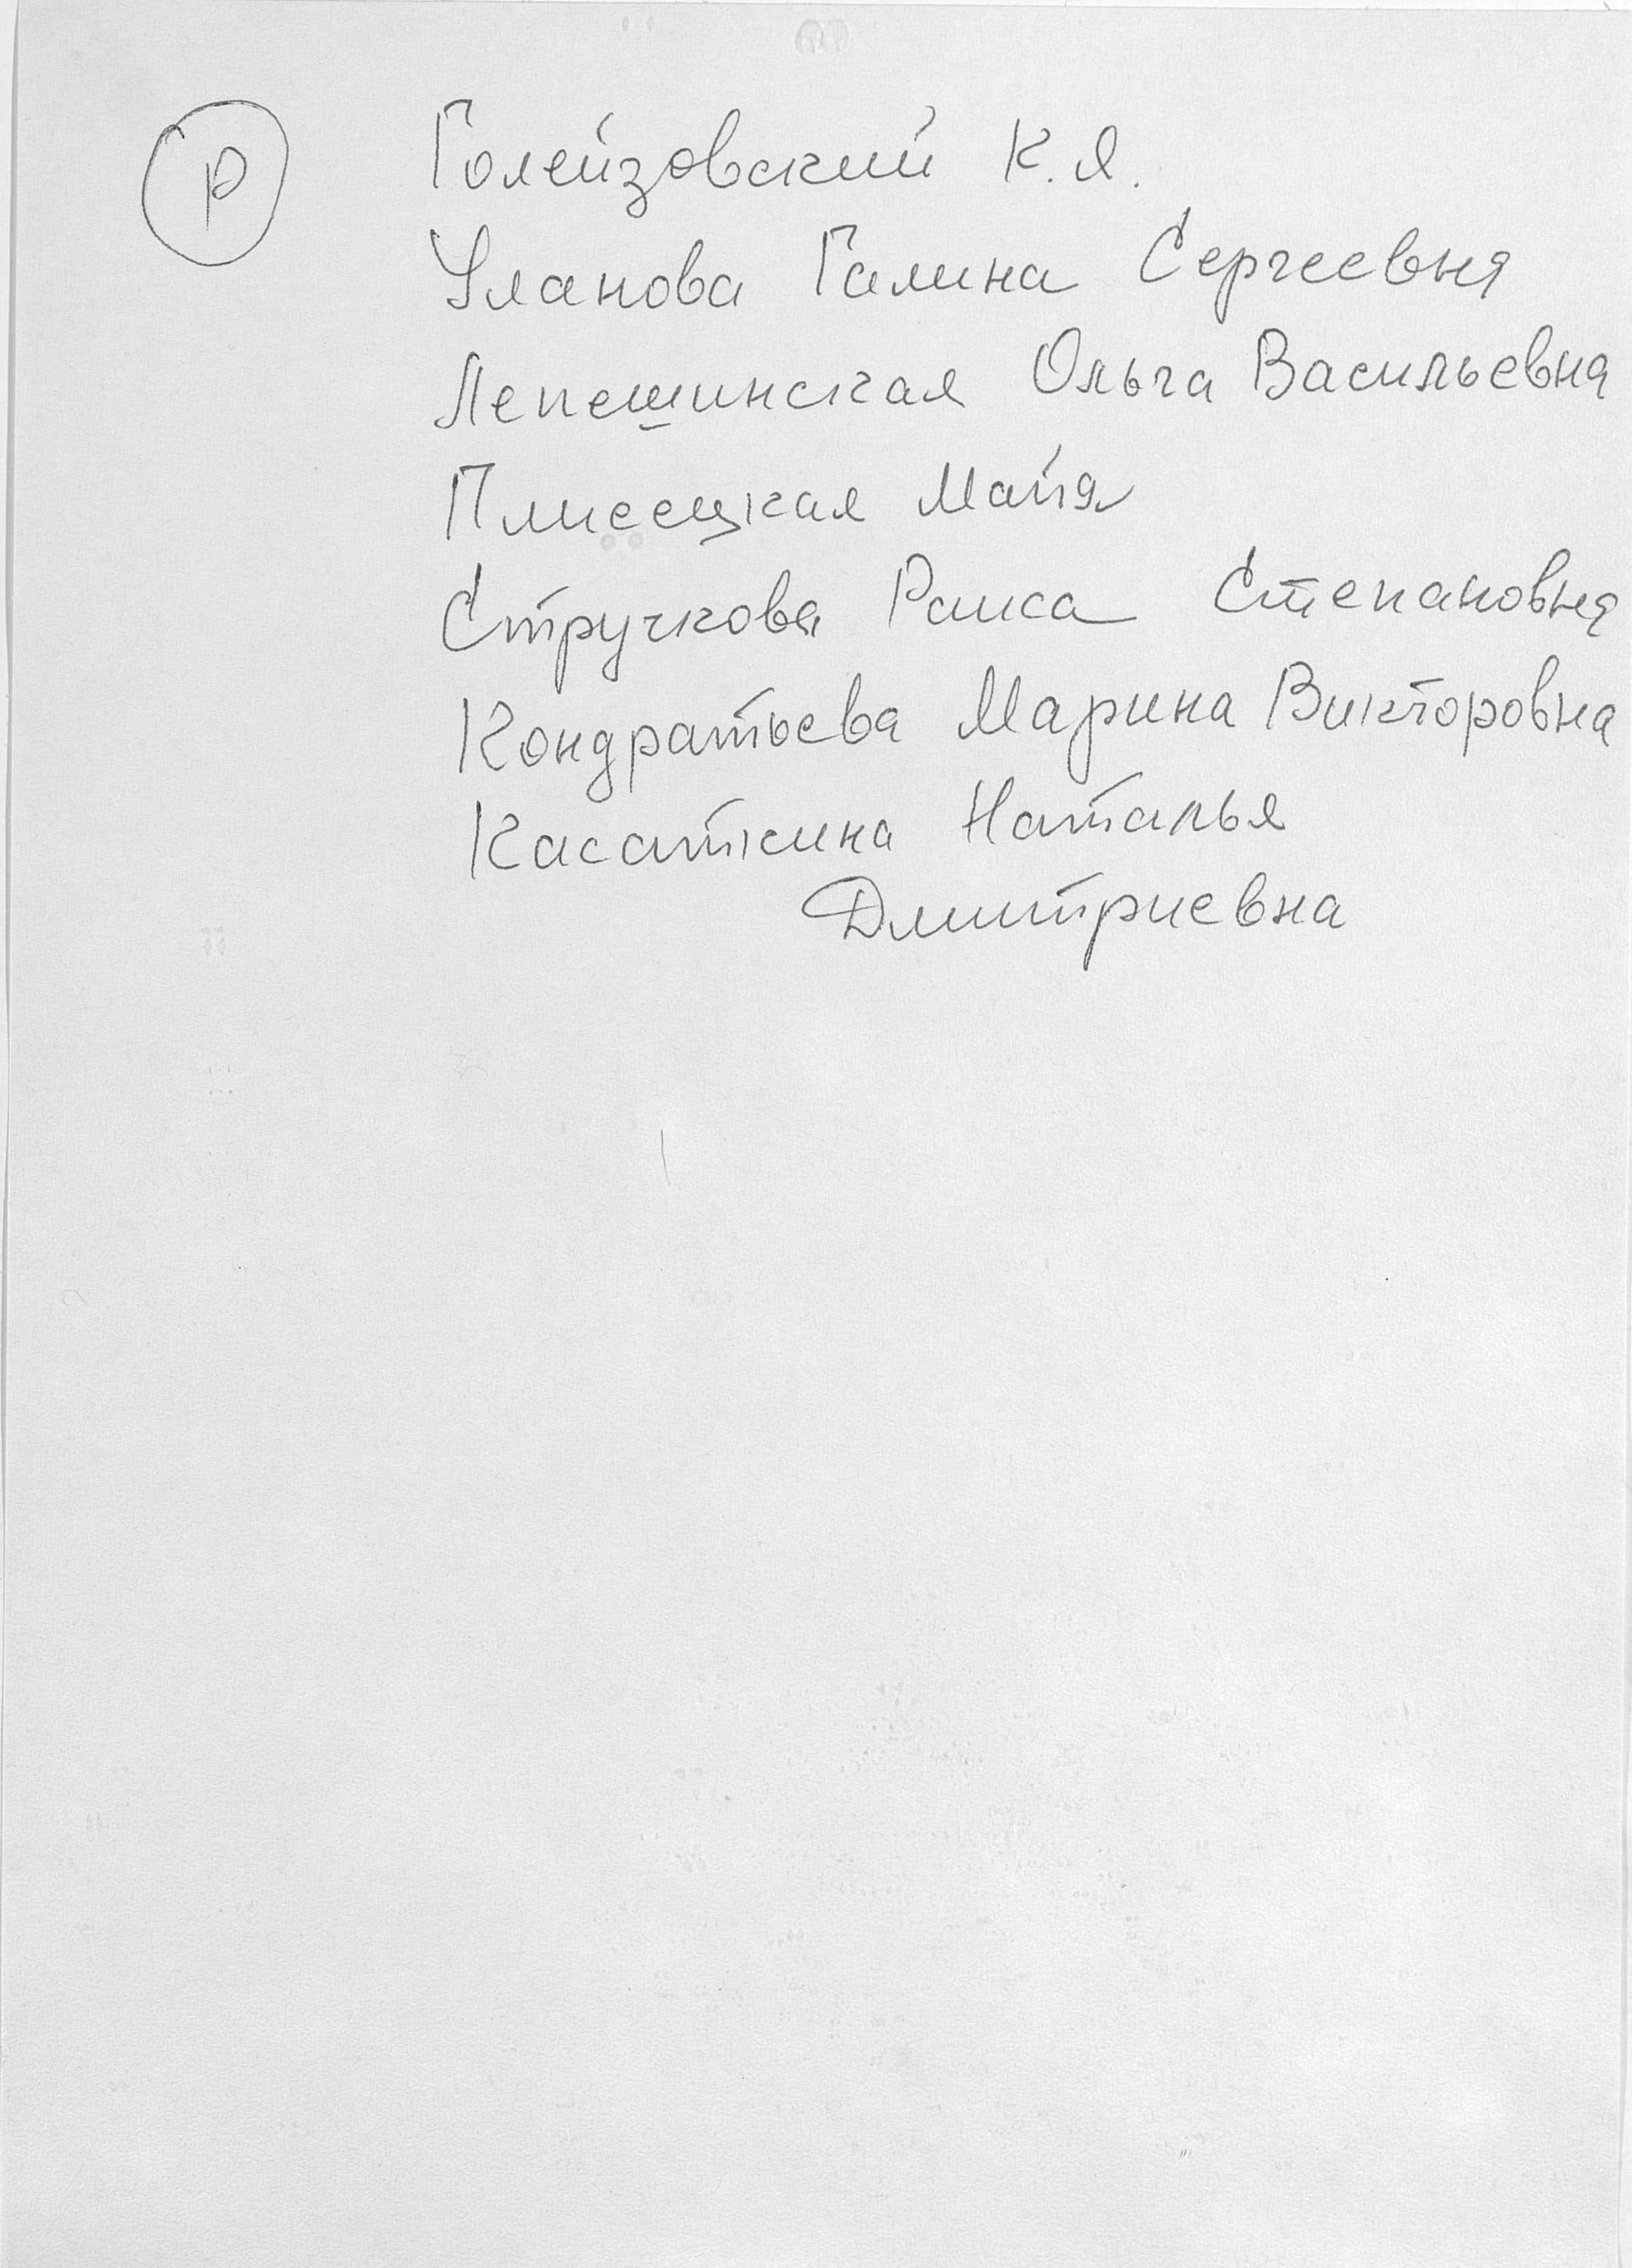 Р Голейзовский К.Я.
Уланова Галина Сергеевна
Лепешинская Ольга Васильевна
Плисецкая Майя
Стручкова Раиса Степановна
Кондратьева Марина Викторовна
Касаткина Наталья
Дмитриевна